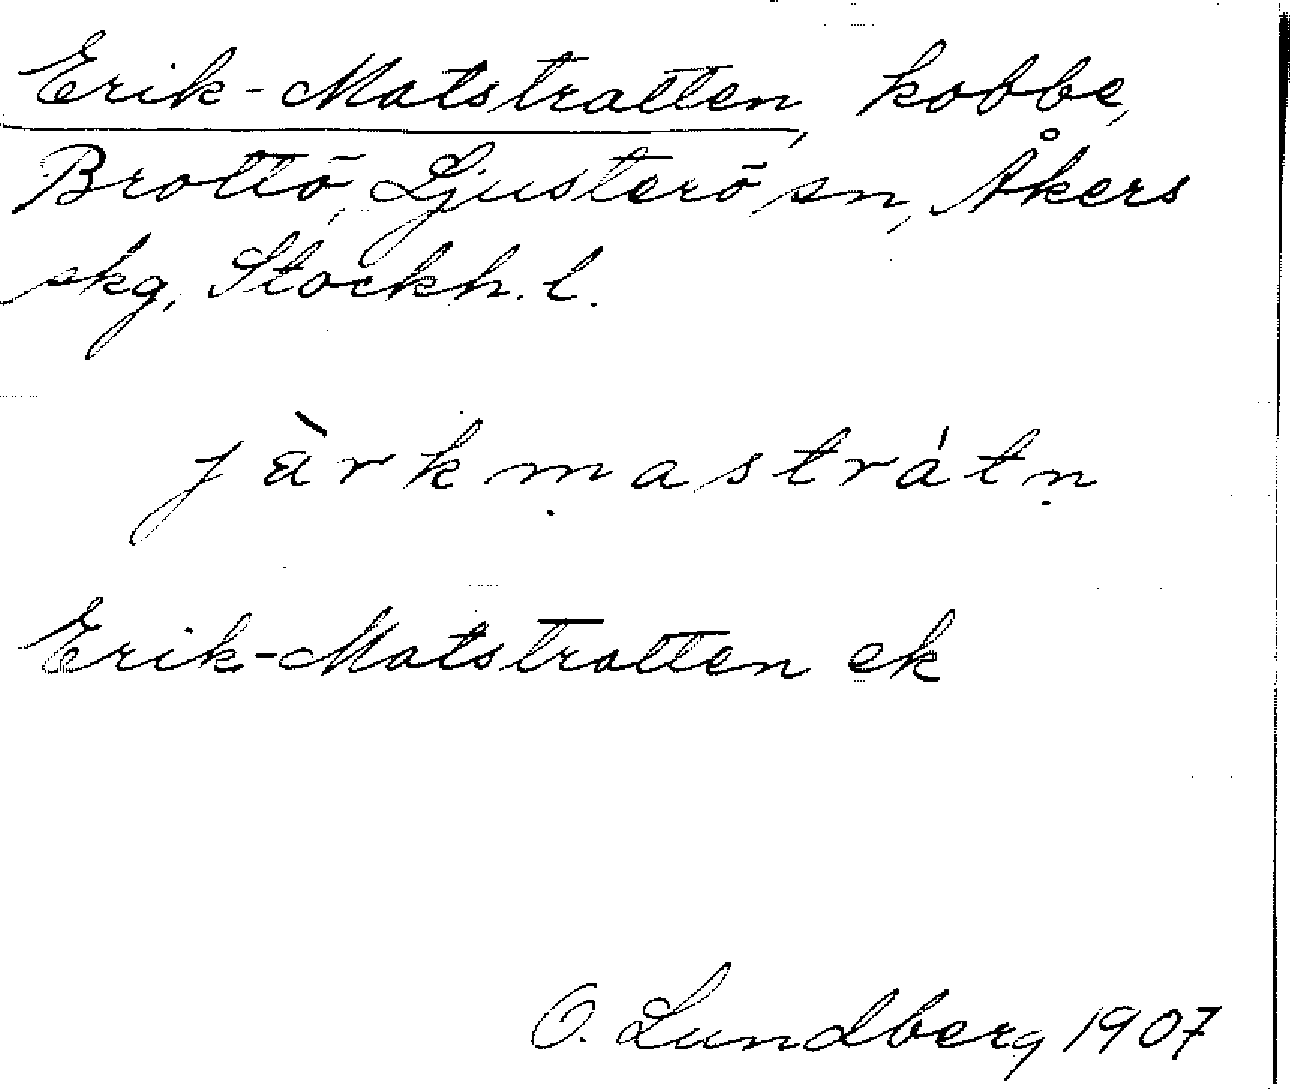 Erik-Matstratten, kobbe,
Brottö, Ljusterö sn, Åkers
skg, Stockh. l.
jàrkṃastrátṇ
Erik-Matstratten ek
O. Lundberg 1907